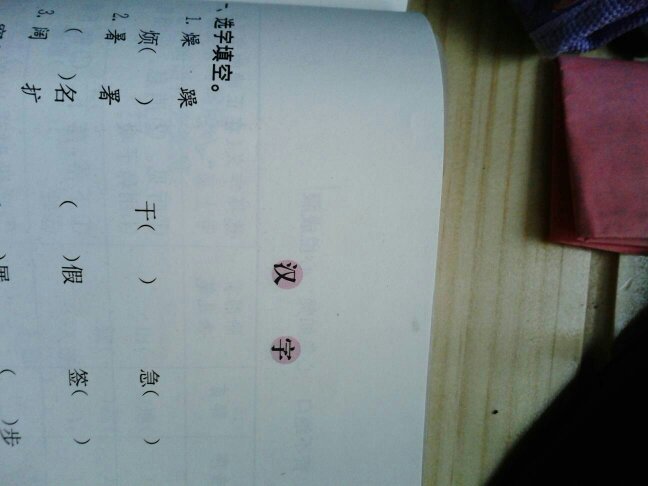 汉字
、选字填空。
1. 燥 躁
烦( ) 干( ) 急( )
2. 暑 署
( )名 ( )假 签( )
3. 阔 扩
)展 ( )步